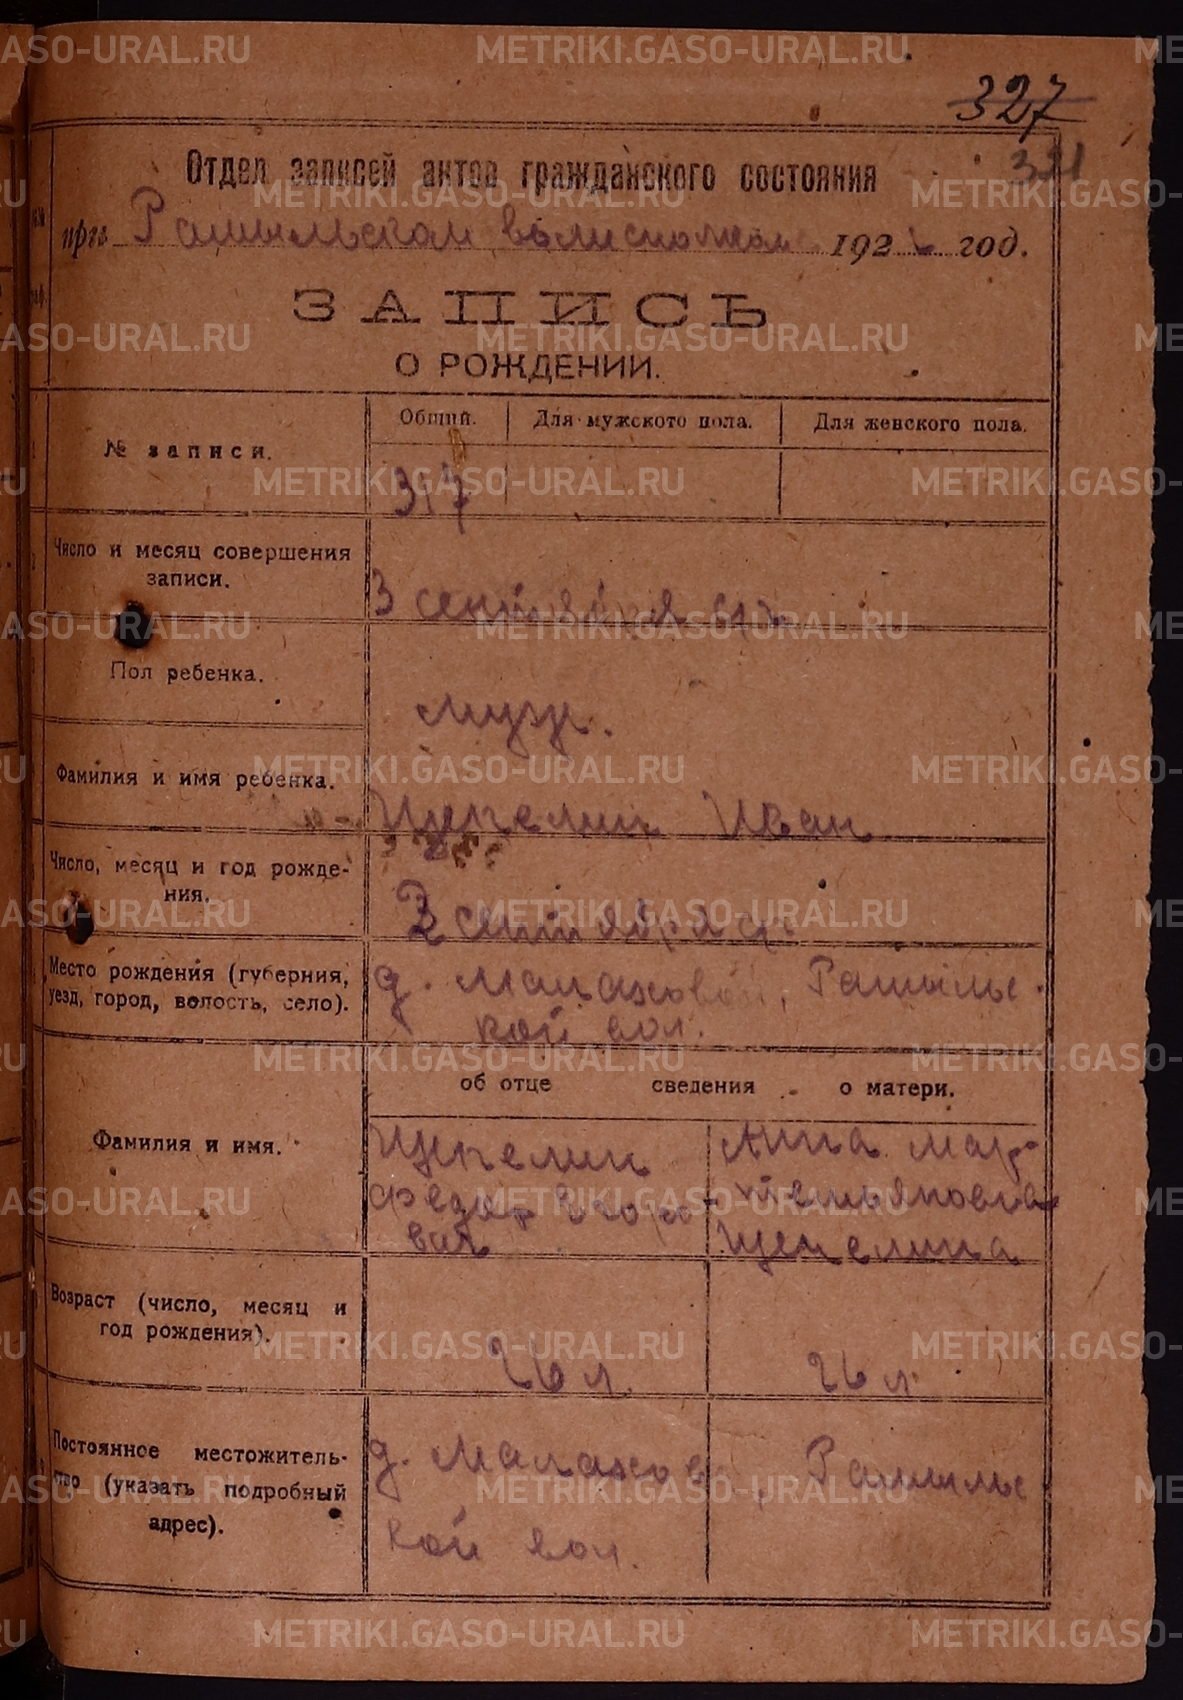 327
321
Отдел записей актов гражданского состояния
при Рамыльском волисполкоме 192 год.
ЗАПИСЬ
О РОЖДЕНИИ.
№ записи.
Общий. Для мужского пола. Для женского пола.
317
Число и месяц совершения
записи.
3 сентября
Пол ребенка.
муж.
Фамилия и имя ребенка.
Щепелин Иван
Число, месяц и год рожде-
ния.
2 сентября
Место рождения (губерния,
уезд, город, волость, село).
д. Малаховой, Рамыльс
кой вол.
об отце сведения о матери.
Фамилия и имя.
Щепелин
Федот
вич
Анна Мар-
Щепелина
Возраст (число, месяц и
год рождения).
26 л. 26 л.
Постоянное местожитель-
ство (указать подробный
адрес).
д. Малахов Рамыльс
кой вол.
METRIKI.GASO-URAL.RU